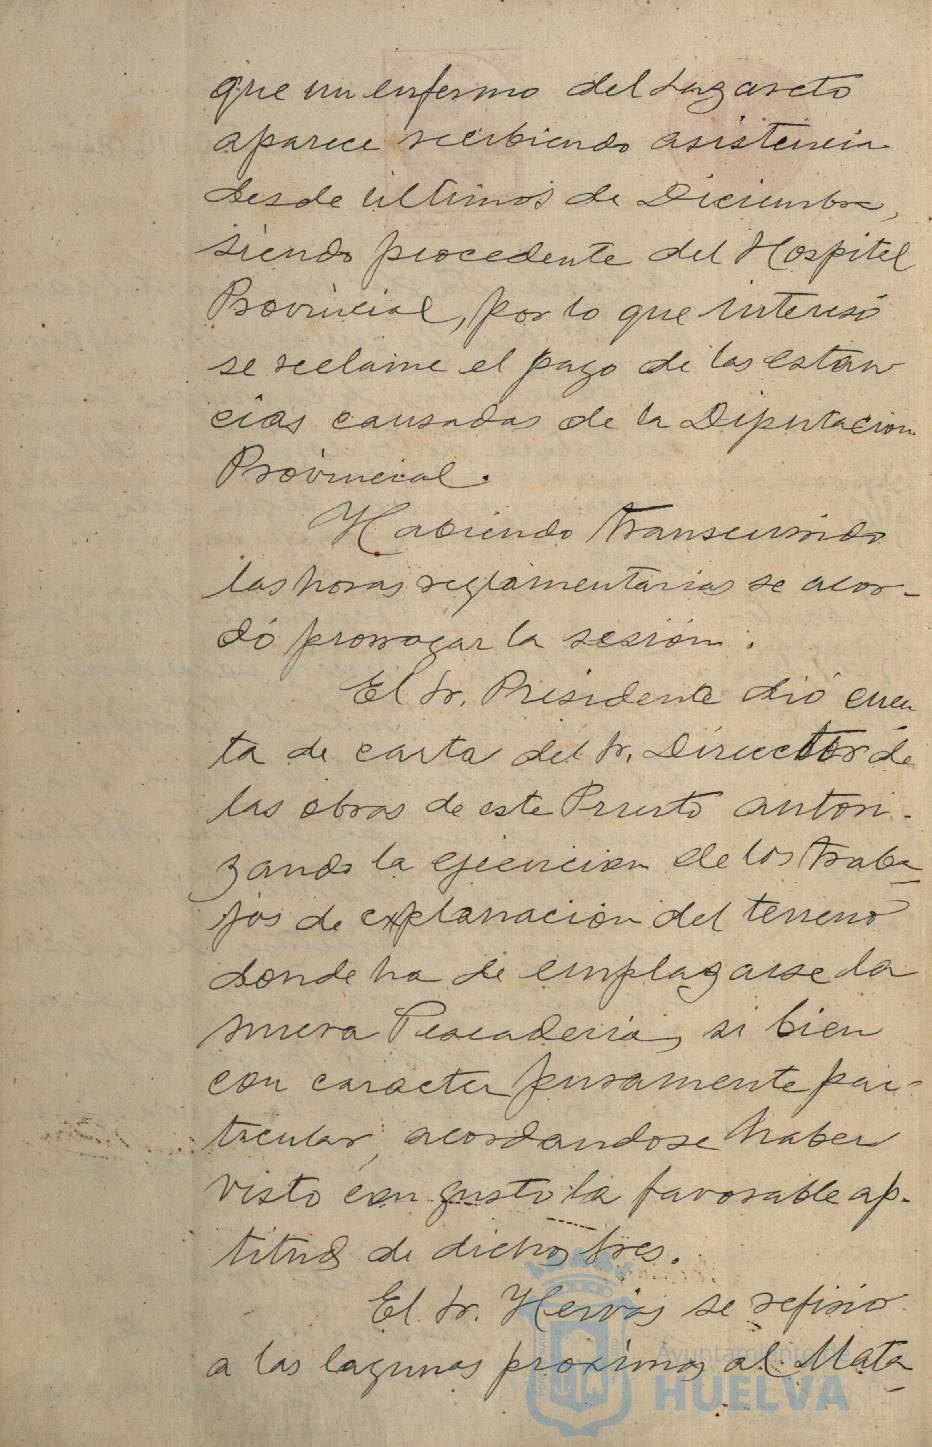 que un enfermo del Lazareto
aparece recibiendo asistencia
desde últimos de Diciembre,
siendo procedente del Hospital
Provincial, por lo que interesó
se reclame el pago de las estan
cias causadas de la Diputacion
Provincial.
Habiendo transcurrido
las horas reglamentarias se acor-
dó prorrogar la sesión.
El Sr. Presidente dió cuen
ta de carta del Sr. Director de
las obras de este Puerto autori-
zando la ejecucion de los traba-
jos de explanación del terreno
donde ha de emplazarse la
nueva Pescaderia, si bien
con caracter puramente par-
ticular, acordandose haber
visto con gusto la favorable ap-
titud de dichos Sres.
El Sr. Hervas se refirio
a las lagunas proximas al Mata-
Ayuntamiento de
HUELVA